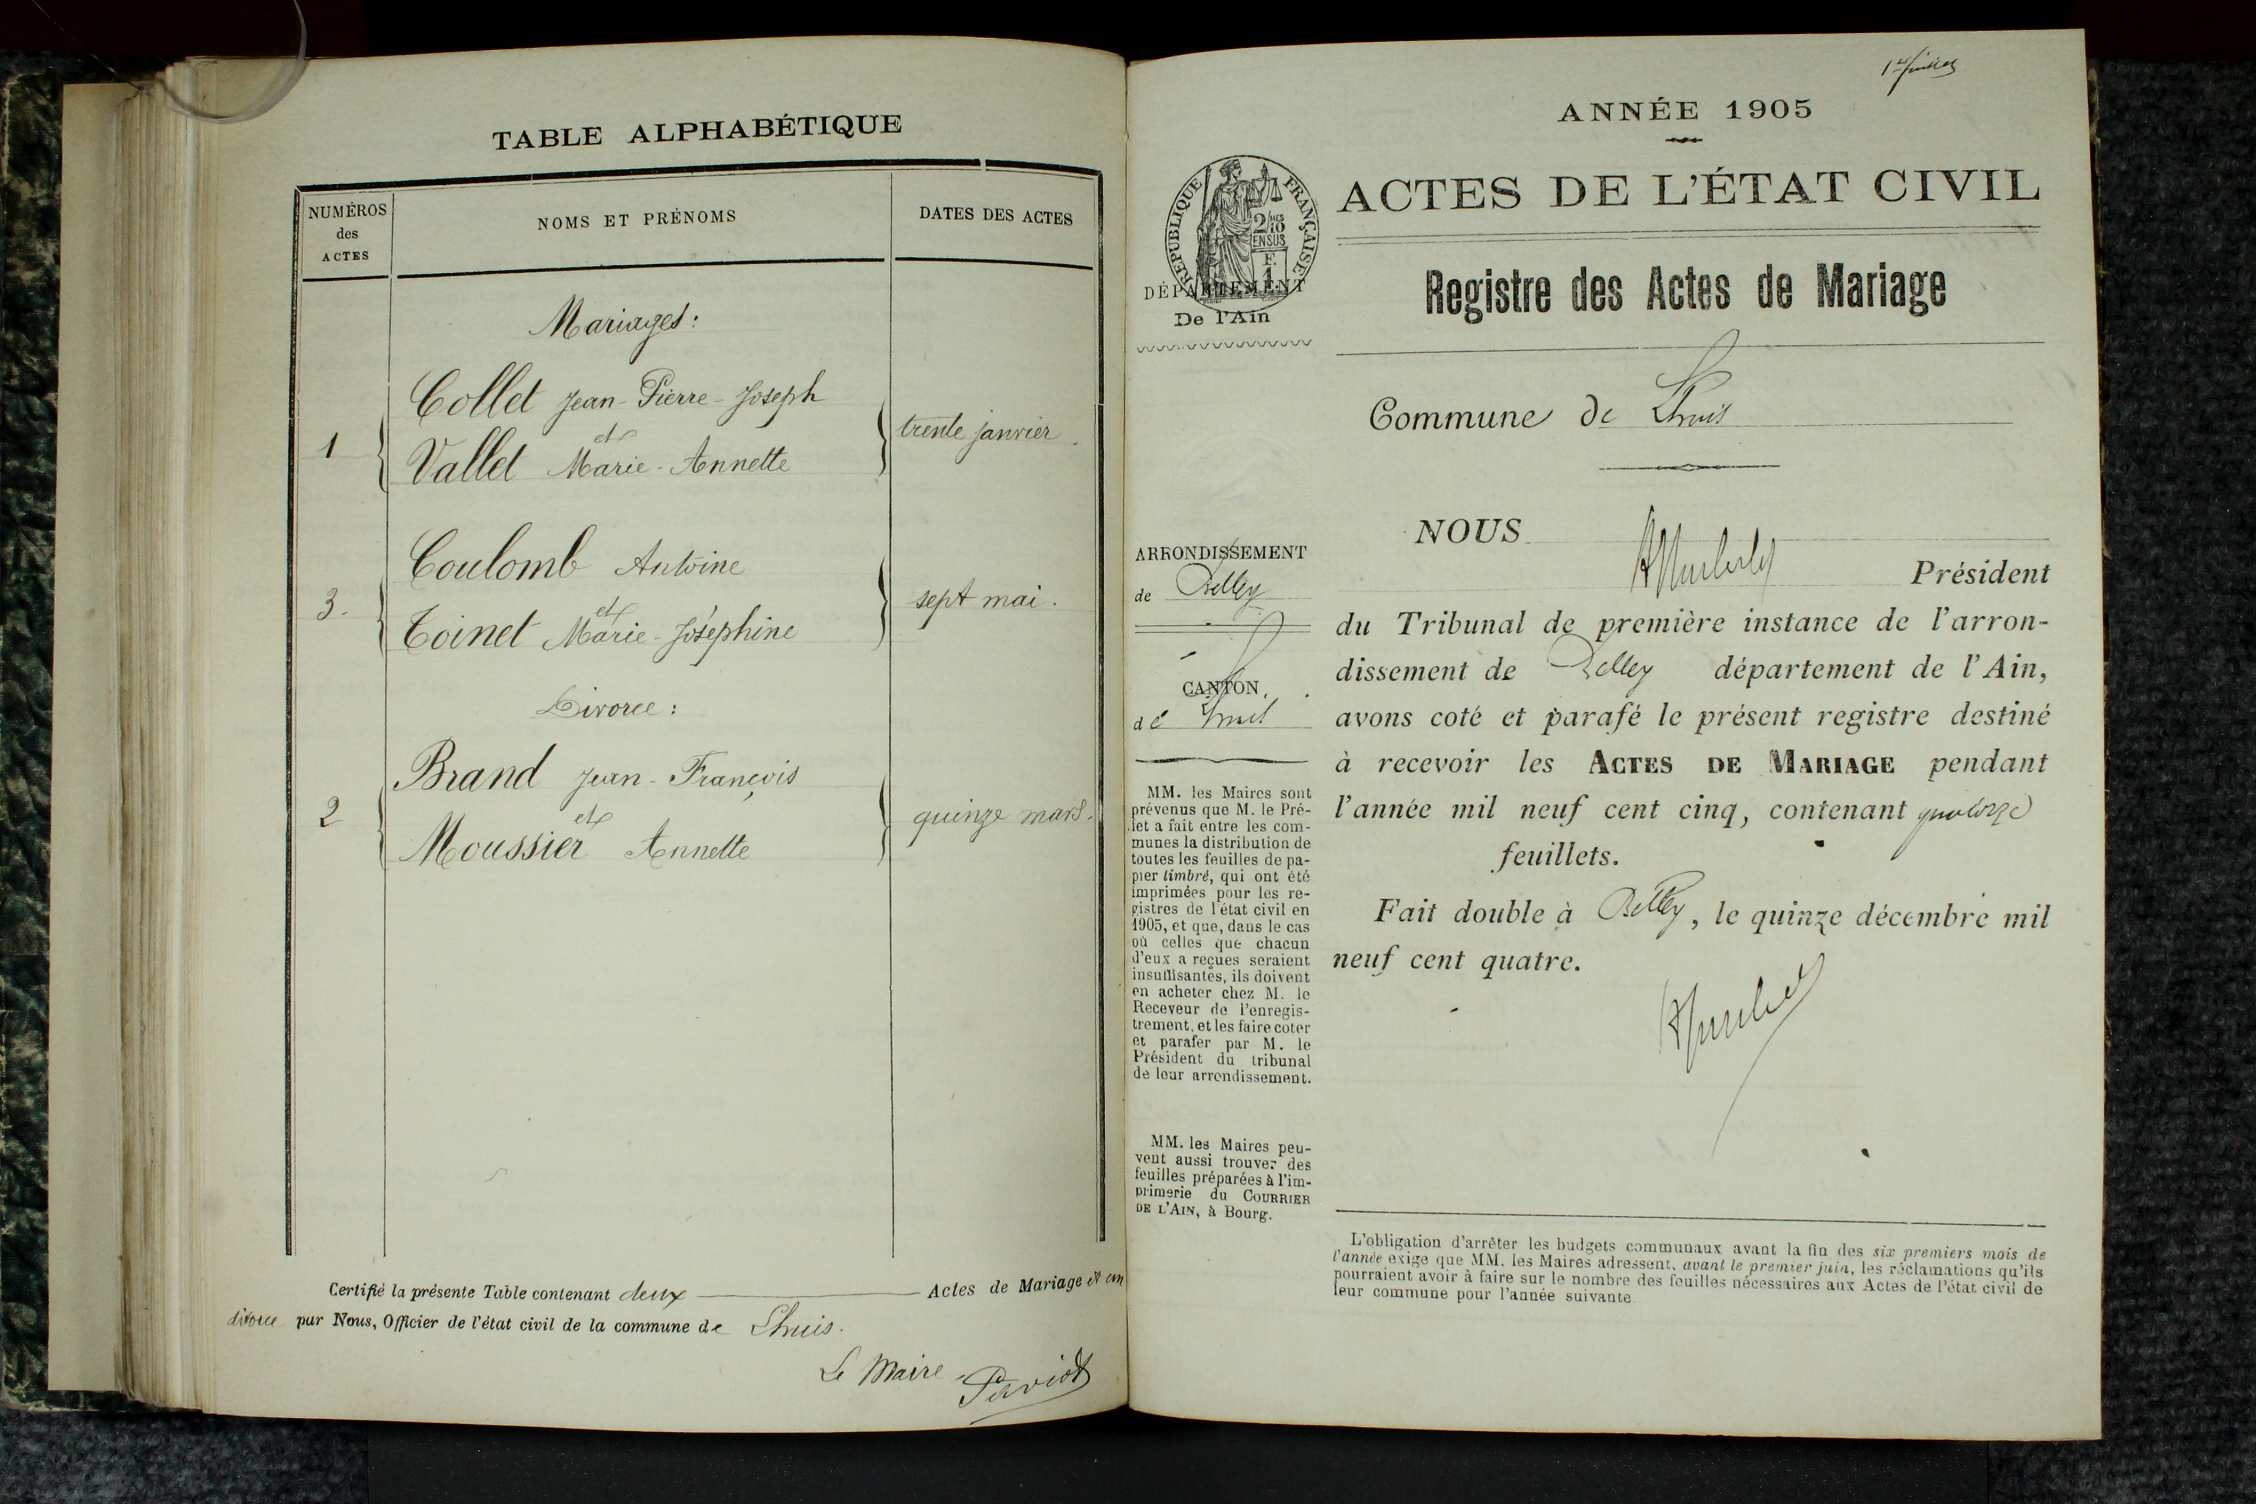 TABLE ALPHABÉTIQUE
NUMÉROS
des
ACTES
NOMS ET PRÉNOMS
DATES DES ACTES
Mariages :
1
Collet Jean-Pierre-Joseph
et
Vallet Marie-Annette
trente janvier.
3.
Coulomb Antoine
et
Toinet Marie-Joséphine
sept mai.
Divorce :
2
Brand Jean-François
et
Moussier Annette
quinze mars.
Certifié la présente Table contenant deux Actes de Mariage et un
divorce par Nous, Officier de l'état civil de la commune de Lhuis.
Le Maire,
Paviot
1er feuillet
ANNÉE 1905
RÉPUBLIQUE FRANÇAISE
2/10 MES
EN SUS
F.
1
DÉPARTEMENT
De l'Ain
ACTES DE L'ÉTAT CIVIL
Registre des Actes de Mariage
Commune de Lhuis
ARRONDISSEMENT
de Belley
CANTON
de Lhuis
MM. les Maires sont
prévenus que M. le Pré-
fet a fait entre les com-
munes la distribution de
toutes les feuilles de pa-
pier timbré, qui ont été
imprimées pour les re-
gistres de l'état civil en
1905, et que, dans le cas
où celles que chacun
d'eux a reçues seraient
insuffisantes, ils doivent
en acheter chez M. le
Receveur de l'enregis-
trement, et les faire coter
et parafer par M. le
Président du tribunal
de leur arrondissement.
MM. les Maires peu-
vent aussi trouver des
feuilles préparées à l'im-
primerie du COURRIER
DE L'AIN, à Bourg.
NOUS
Président
du Tribunal de première instance de l'arron-
dissement de Belley département de l'Ain,
avons coté et parafé le présent registre destiné
à recevoir les ACTES DE MARIAGE pendant
l'année mil neuf cent cinq, contenant quatorze
feuillets.
Fait double à Belley, le quinze décembre mil
neuf cent quatre.
L'obligation d'arrêter les budgets communaux avant la fin des six premiers mois de
l'année exige que MM. les Maires adressent, avant le premier juin, les réclamations qu'ils
pourraient avoir à faire sur le nombre des feuilles nécessaires aux Actes de l'état civil de
leur commune pour l'année suivante